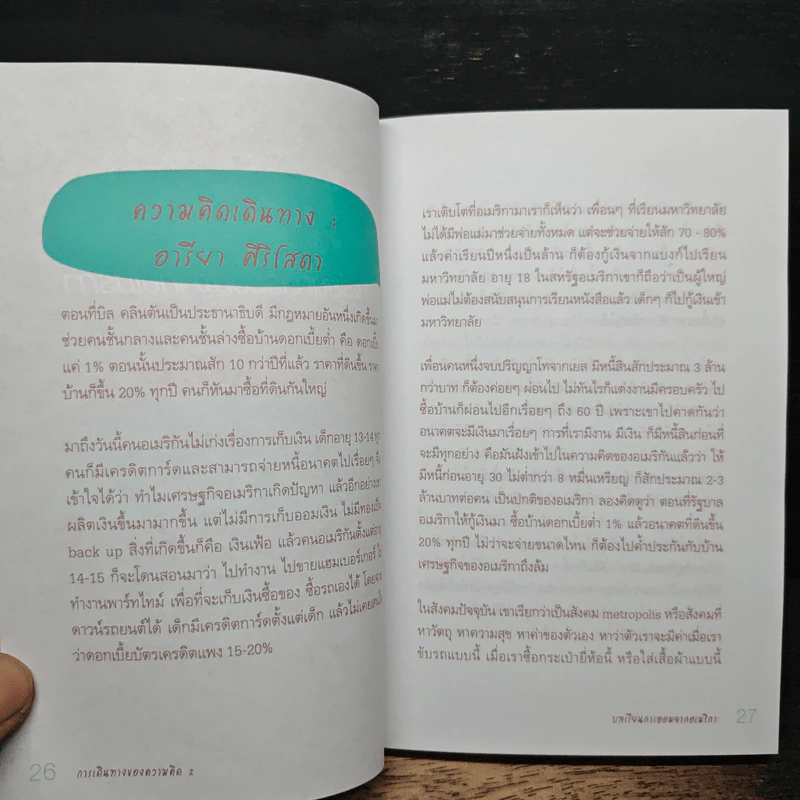 ความคิดเดินทาง :
อารียา สิริโสดา
ตอนที่บิล คลินตันเป็นประธานาธิบดี มีกฎหมายอันหนึ่งเกิดขึ้น
ช่วยคนชั้นกลางและคนชั้นล่างซื้อบ้านดอกเบี้ยต่ำ คือ
แค่ 1% ตอนนั้นประมาณสัก 10 กว่าปีที่แล้ว ราคาที่ดินขึ้น
บ้านก็ขึ้น 20% ทุกปี คนก็หันมาซื้อที่ดินกันใหญ่
มาถึงวันนี้คนอเมริกันไม่เก่งเรื่องการเก็บเงิน เด็กอายุ 13-14
คนก็มีเครดิตการ์ดและสามารถจ่ายหนี้อนาคตไปเรื่อยๆ
เข้าใจได้ว่า ทำไมเศรษฐกิจอเมริกาเกิดปัญหา แล้วอีกอย่าง
ผลิตเงินขึ้นมามากขึ้น แต่ไม่มีการเก็บออมเงิน ไม่มีทอง
back up สิ่งที่เกิดขึ้นก็คือ เงินเฟ้อ แล้วคนอเมริกันตั้งแต่
14-15 ก็จะโดนสอนมาว่า ไปทำงาน ไปขายแฮมเบอร์เกอร์
ทำงานพาร์ทไทม์ เพื่อที่จะเก็บเงินซื้อของ ซื้อรถเองได้
ดาวน์รถยนต์ได้ เด็กมีเครดิตการ์ดตั้งแต่เด็ก แล้วไม่เคย
ว่าดอกเบี้ยบัตรเครดิตแพง 15-20%
26 การเดินทางของความคิด 2
เราเติบโตที่อเมริกามาเราก็เห็นว่า เพื่อนๆ ที่เรียนมหาวิทยาลัย
ไม่ได้มีพ่อแม่มาช่วยจ่ายทั้งหมด แต่จะช่วยจ่ายให้สัก 70 - 80%
แล้วค่าเรียนปีหนึ่งเป็นล้าน ก็ต้องกู้เงินจากแบงก์ไปเรียน
มหาวิทยาลัย อายุ 18 ในสหรัฐอเมริกาเขาก็ถือว่าเป็นผู้ใหญ่
พ่อแม่ไม่ต้องสนับสนุนการเรียนหนังสือแล้ว เด็กๆ ก็ไปกู้เงินเข้า
มหาวิทยาลัย
เพื่อนคนหนึ่งจบปริญญาโทจากเยล มีหนี้สินสักประมาณ 3 ล้าน
กว่าบาท ก็ต้องค่อยๆ ผ่อนไป ไม่ทันไรก็แต่งงานมีครอบครัว ไป
ซื้อบ้านก็ผ่อนไปอีกเรื่อยๆ ถึง 60 ปี เพราะเขาไปคาดกันว่า
อนาคตจะมีเงินมาเรื่อยๆ การที่เรามีงาน มีเงิน ก็มีหนี้สินก่อนที่
จะมีทุกอย่าง คือมันฝังเข้าไปในความคิดของอเมริกันแล้วว่า ให้
มีหนี้ก่อนอายุ 30 ไม่ต่ำกว่า 8 หมื่นเหรียญ ก็สักประมาณ 2-3
ล้านบาทต่อคน เป็นปกติของอเมริกา ลองคิดดูว่า ตอนที่รัฐบาล
อเมริกาให้กู้เงินมา ซื้อบ้านดอกเบี้ยต่ำ 1% แล้วอนาคตที่ดินขึ้น
20% ทุกปี ไม่ว่าจะจ่ายขนาดไหน ก็ต้องไปค้ำประกันกับบ้าน
เศรษฐกิจของอเมริกาถึงล้ม
ในสังคมปัจจุบัน เขาเรียกว่าเป็นสังคม metropolis หรือสังคมที่
หาวัตถุ หาความสุข หาค่าของตัวเอง หาว่าตัวเราจะมีค่าเมื่อเรา
ขับรถแบบนี้ เมื่อเราซื้อกระเป๋ายี่ห้อนี้ หรือใส่เสื้อผ้าแบบนี้
บทเรียนการออมจากอเมริกา 27